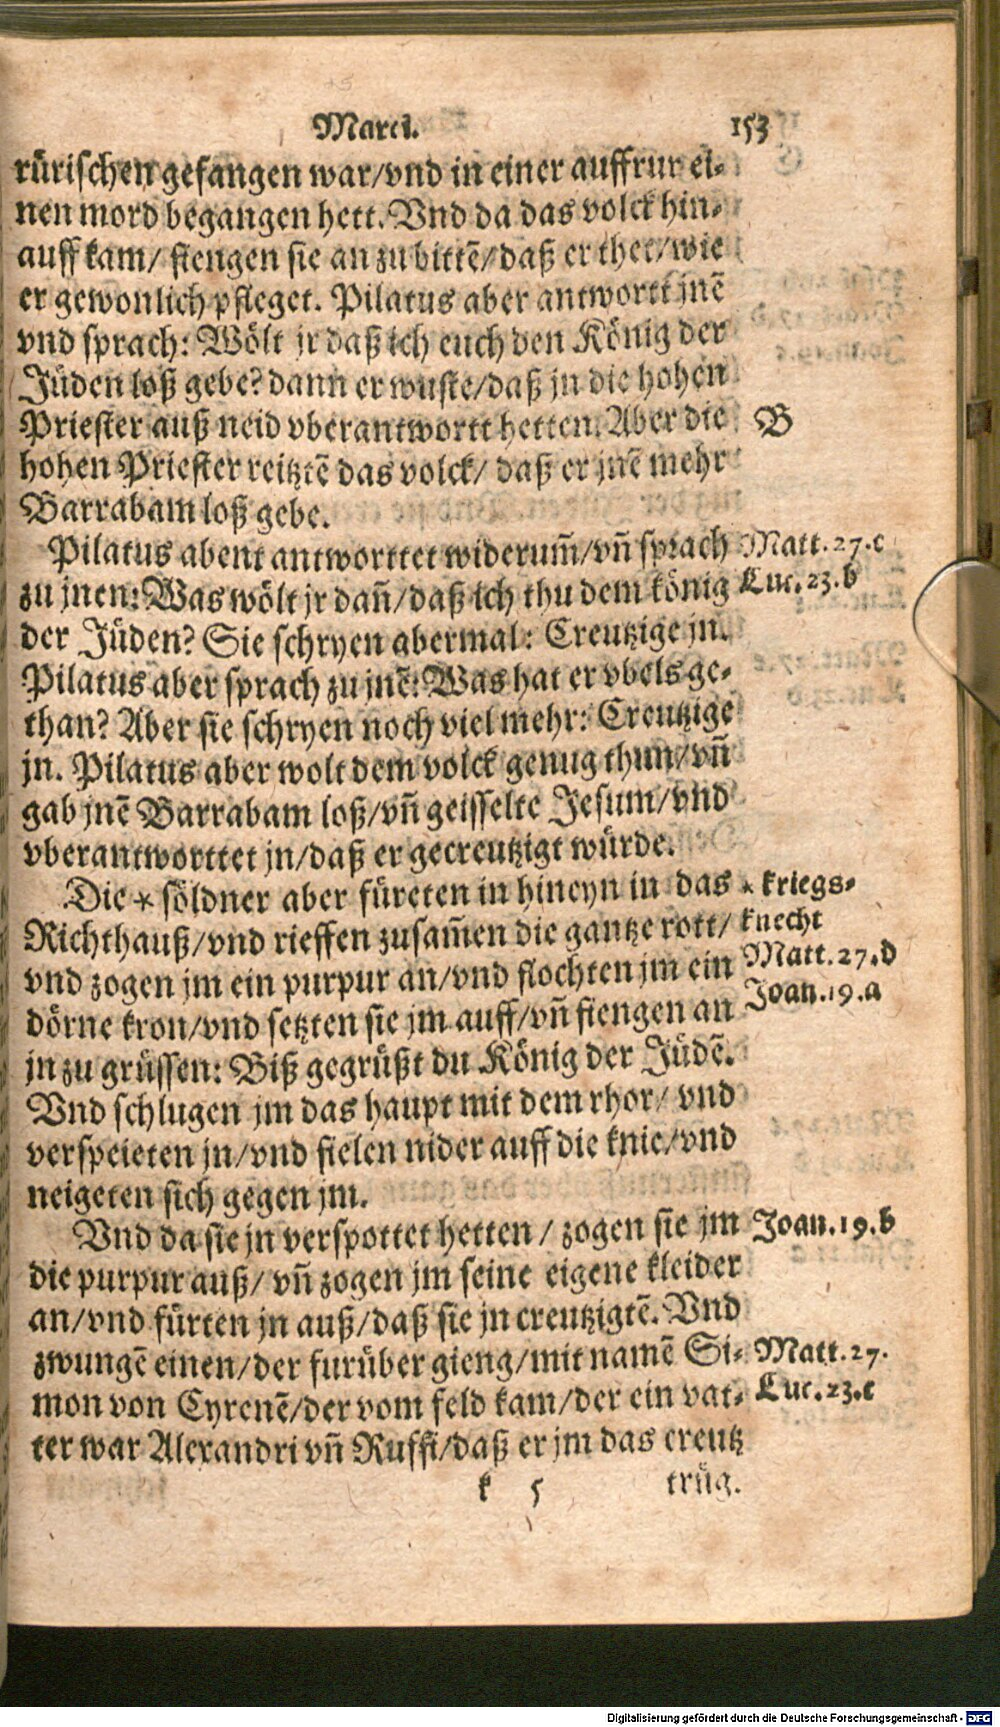 Marci. 153
rürischen gefangen war/vnd in einer auffrur ei-
nen mord begangen hett. Vnd da das volck hin-
auff kam/ fiengen sie an zu bittẽ/daß er thet/wie
er gewonlich pfleget. Pilatus aber antwortt jnẽ
vnd sprach: Wölt jr daß ich euch den König der
Jüden loß gebe? dann er wuste/daß jn die hohen
Priester auß neid vberantwortt hetten. Aber die B
hohen Priester reitztẽ das volck/ daß er jnẽ mehr
Barrabam loß gebe.
Pilatus abent antworttet widerum̃/vñ sprach Matt.27.c
zu jnen: Was wölt jr dañ/daß ich thu dem könig Luc.23.b
der Jüden? Sie schryen abermal: Creutzige jn.
Pilatus aber sprach zu jnẽ: Was hat er vbels ge-
than? Aber sie schryen noch viel mehr: Creutzige
jn. Pilatus aber wolt dem volck genug thun/vñ
gab jnẽ Barrabam loß/vñ geisselte Jesum/vnd
vberantworttet jn/daß er gecreutzigt würde.
Die * söldner aber füreten in hineyn in das * kriegs-
Richthauß/vnd rieffen zusam̃en die gantze rott/ knecht
vnd zogen jm ein purpur an/vnd flochten jm ein Matt.27.d
dörne kron/vnd setzten sie jm auff/vñ fiengen an Joan.19.a
jn zu grüssen: Biß gegrüßt du König der Jüdẽ.
Vnd schlugen jm das haupt mit dem rhor/ vnd
verspeieten jn/vnd fielen nider auff die knie/vnd
neigeten sich gegen jm.
Vnd da sie jn verspottet hetten/ zogen sie jm Joan.19.b
die purpur auß/ vñ zogen jm seine eigene kleider
an/vnd fürten jn auß/daß sie jn creutzigtẽ. Vnd
zwungẽ einen/der furüber gieng/mit namẽ Si- Matt.27.
mon von Cyrenẽ/der vom feld kam/der ein vat- Luc.23.c
ter war Alexandri vñ Ruffi/daß er jm das creutz
k 5 trüg.
Digitalisierung gefördert durch die Deutsche Forschungsgemeinschaft - DFG